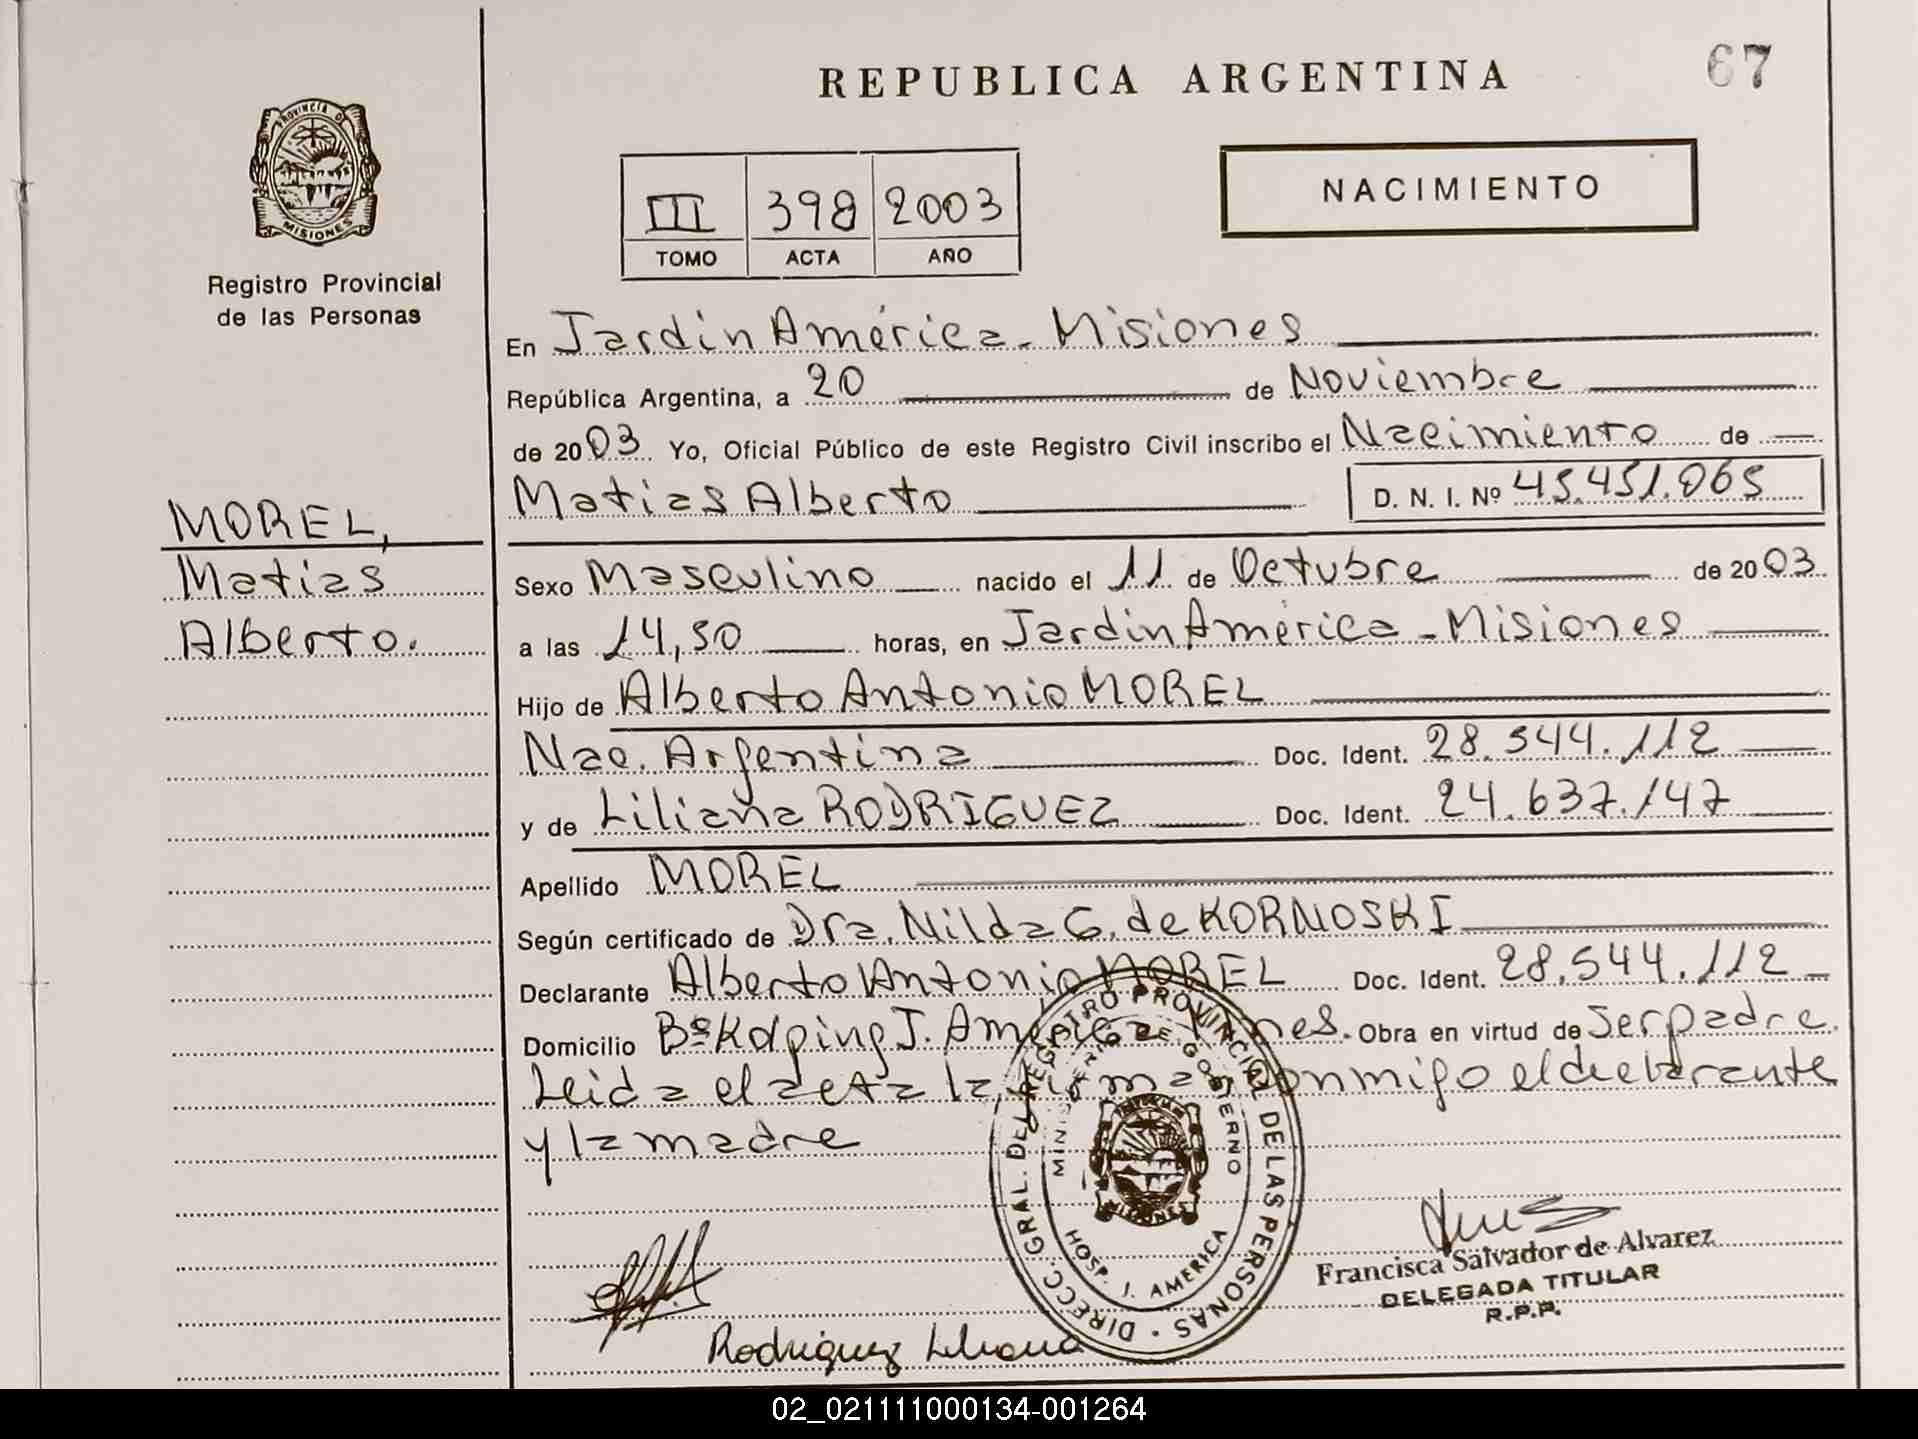 REPUBLICA ARGENTINA
67
PROVINCIA DE
MISIONES
Registro Provincial
de las Personas
III 398 2003
TOMO ACTA AÑO
NACIMIENTO
En Jardin América - Misiones
República Argentina, a 20 de Noviembre
de 2003 Yo, Oficial Público de este Registro Civil inscribo el Nacimiento de
Matias Alberto D. N. I. Nº 45.451.065
MOREL,
Matias
Alberto.
Sexo Masculino nacido el 11 de Octubre de 2003
a las 14,50 horas, en Jardin América - Misiones
Hijo de Alberto Antonio MOREL
Nac. Argentina Doc. Ident. 28.544.112
y de Liliana RODRIGUEZ Doc. Ident. 24.637.147
Apellido MOREL
Según certificado de Dra. Nilda G. de KORNOSKI
Declarante Alberto Antonio MOREL Doc. Ident. 28.544.112
Domicilio Bº Kolping J. América Mnes. Obra en virtud de Ser padre.
Leida el acta la firma conmigo el declarante
y la madre
DIRECC. GRAL. DEL REGISTRO PROVINCIAL DE LAS PERSONAS
MINISTERIO DE GOBIERNO
MISIONES
HOSP. J. AMERICA
Francisca Salvador de Alvarez
DELEGADA TITULAR
R.P.P.
Rodriguez Liliana
02_021111000134-001264